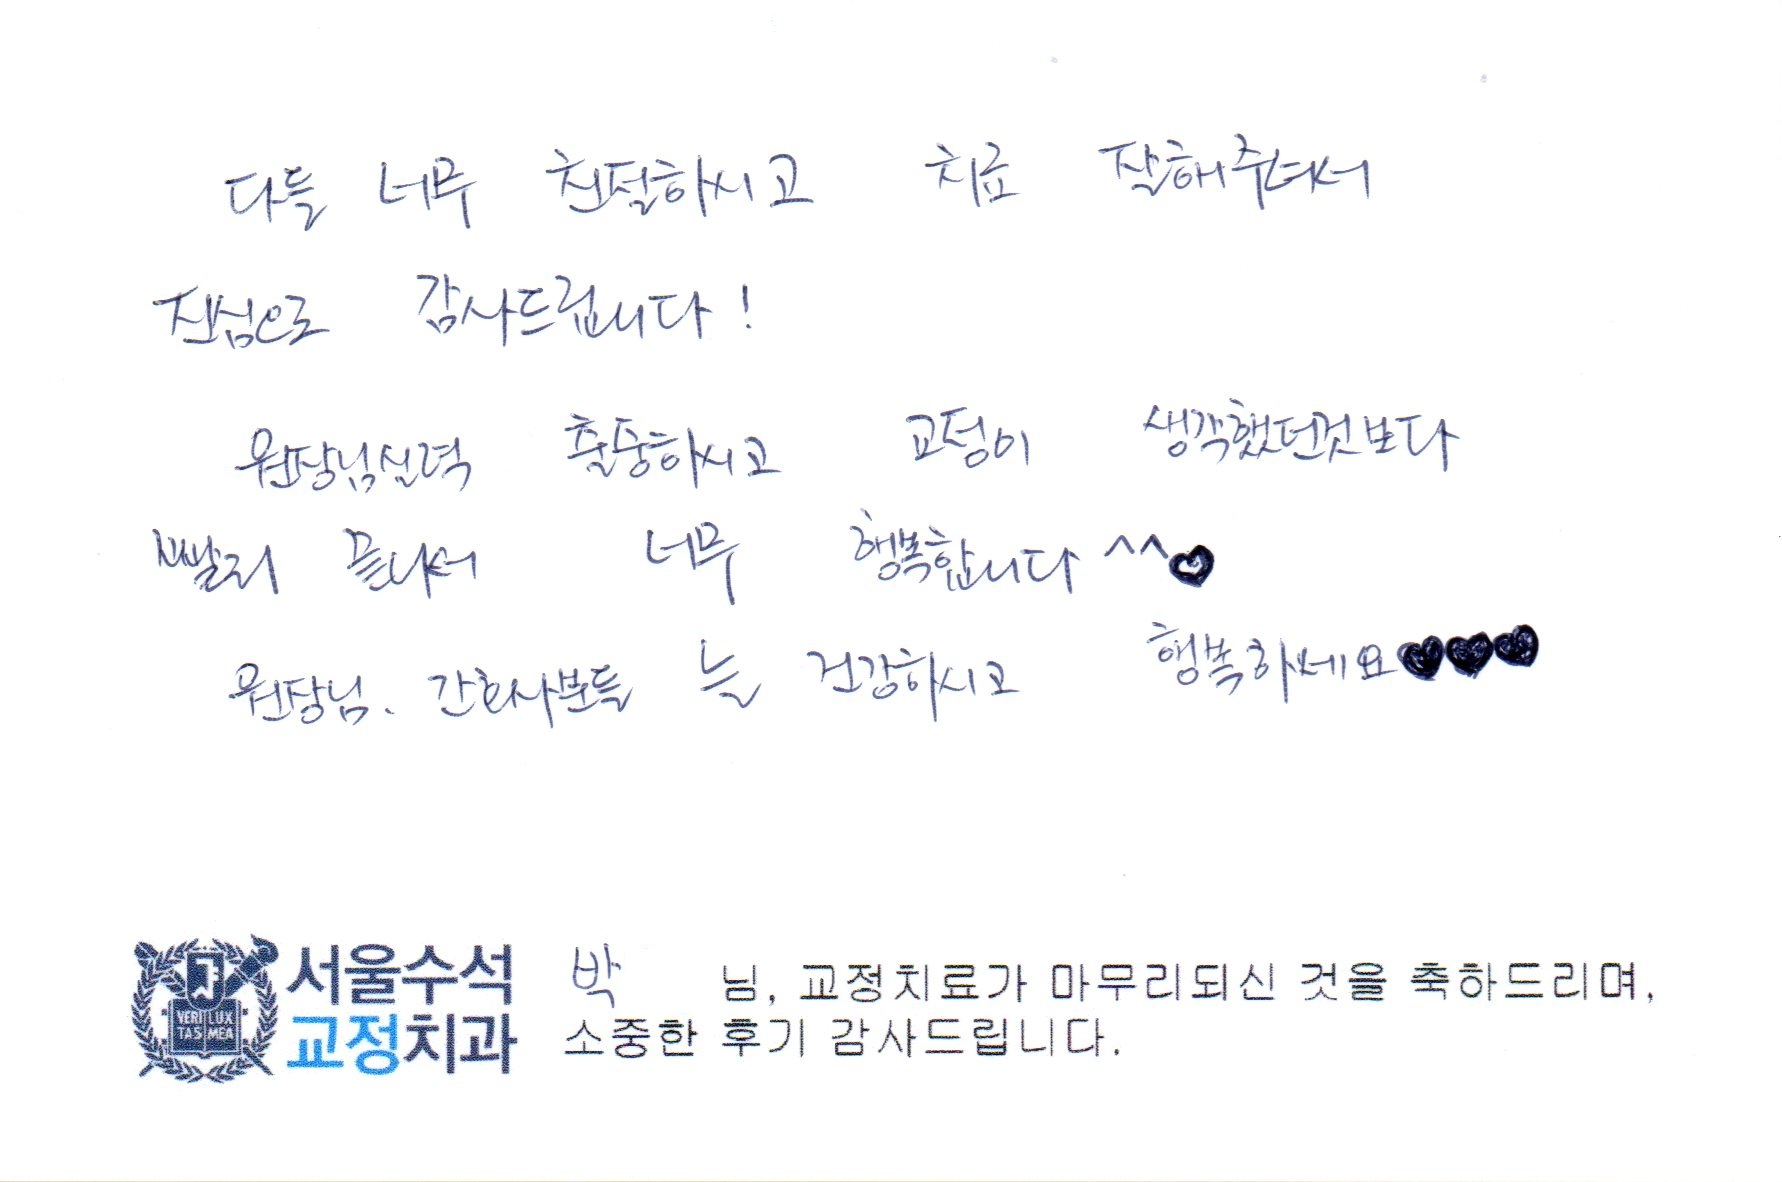 다들 너무 친절하시고 치료 잘해주셔서
진심으로 감사드립니다!
원장님실력 출중하시고 교정이 생각했던것보다
빨리 끝나서 너무 행복합니다^^♡
원장님, 간호사분들 늘 건강하시고 행복하세요♥♥♥
서울수석
교정치과
VERI LUX
TAS MEA
박 님, 교정치료가 마무리되신 것을 축하드리며,
소중한 후기 감사드립니다.